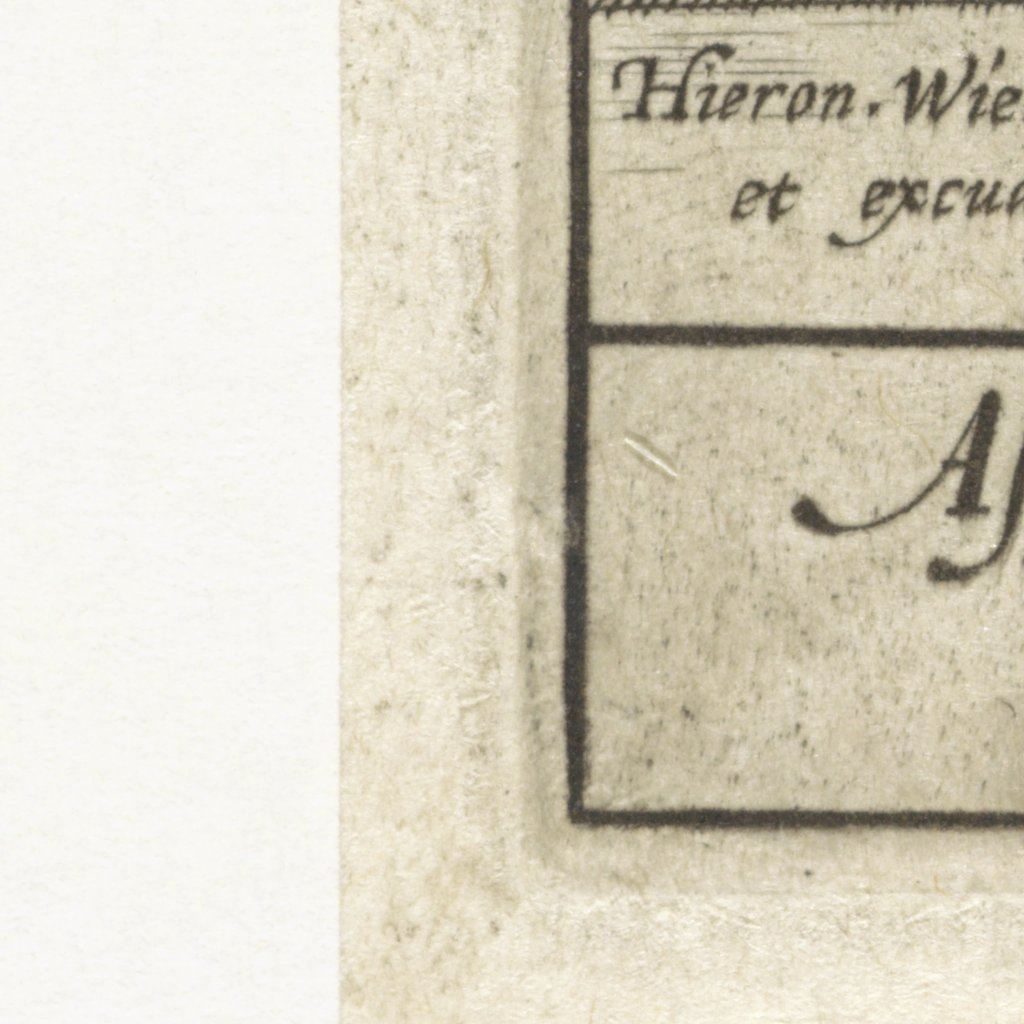 Hieron. Wie
et excud
A